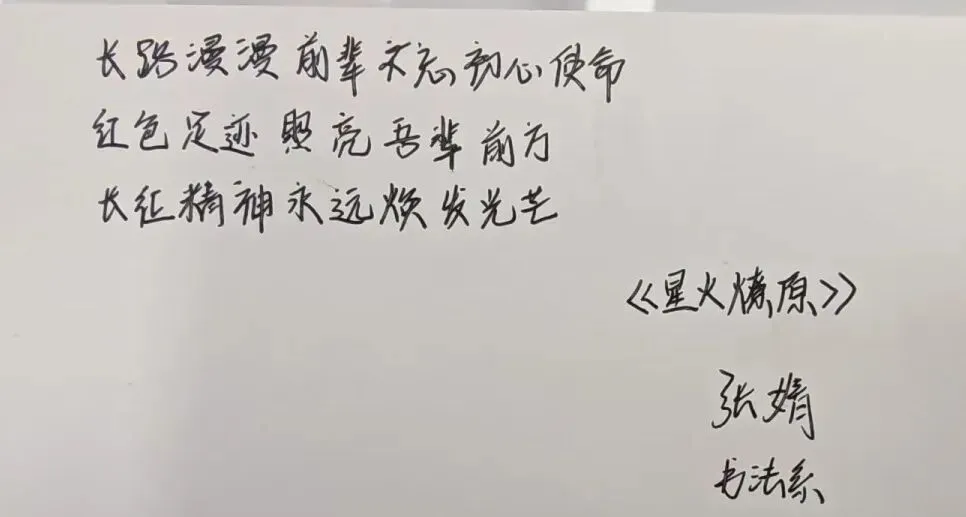 长路漫漫前辈不忘初心使命
红色足迹照亮吾辈前方
长征精神永远焕发光芒
《星火燎原》
张婧
书法系